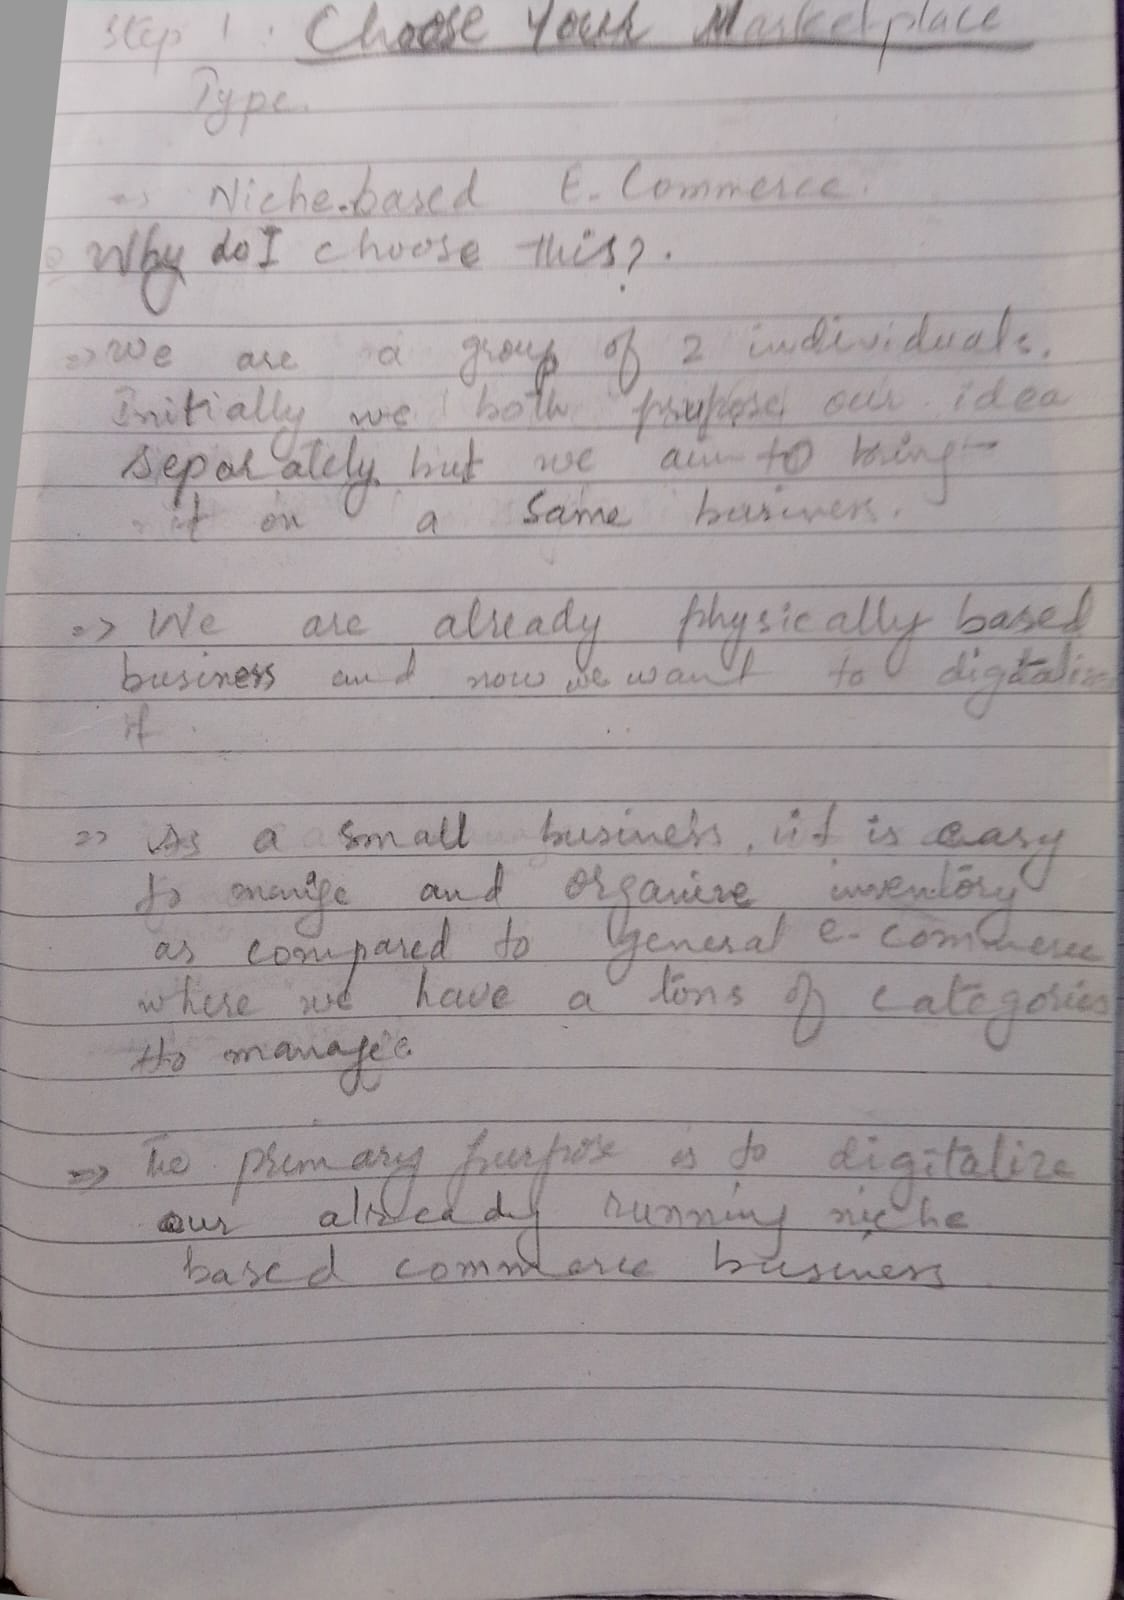 Step 1 : Choose Your Marketplace
Type.
=> Niche-based E-Commerce.
Why do I choose this?.
=> We are a group of 2 individuals.
Initially we both propose our idea
separately, but we aim to bring
it on a same business.
=> We are already physically based
business and now we want to digitalize
it.
=> As a small business, it is easy
to manage and organize inventory
as compared to general e-commerce
where we have a tons of categories
to manage.
=> The primary purpose is to digitalize
our already running niche
based commerce business